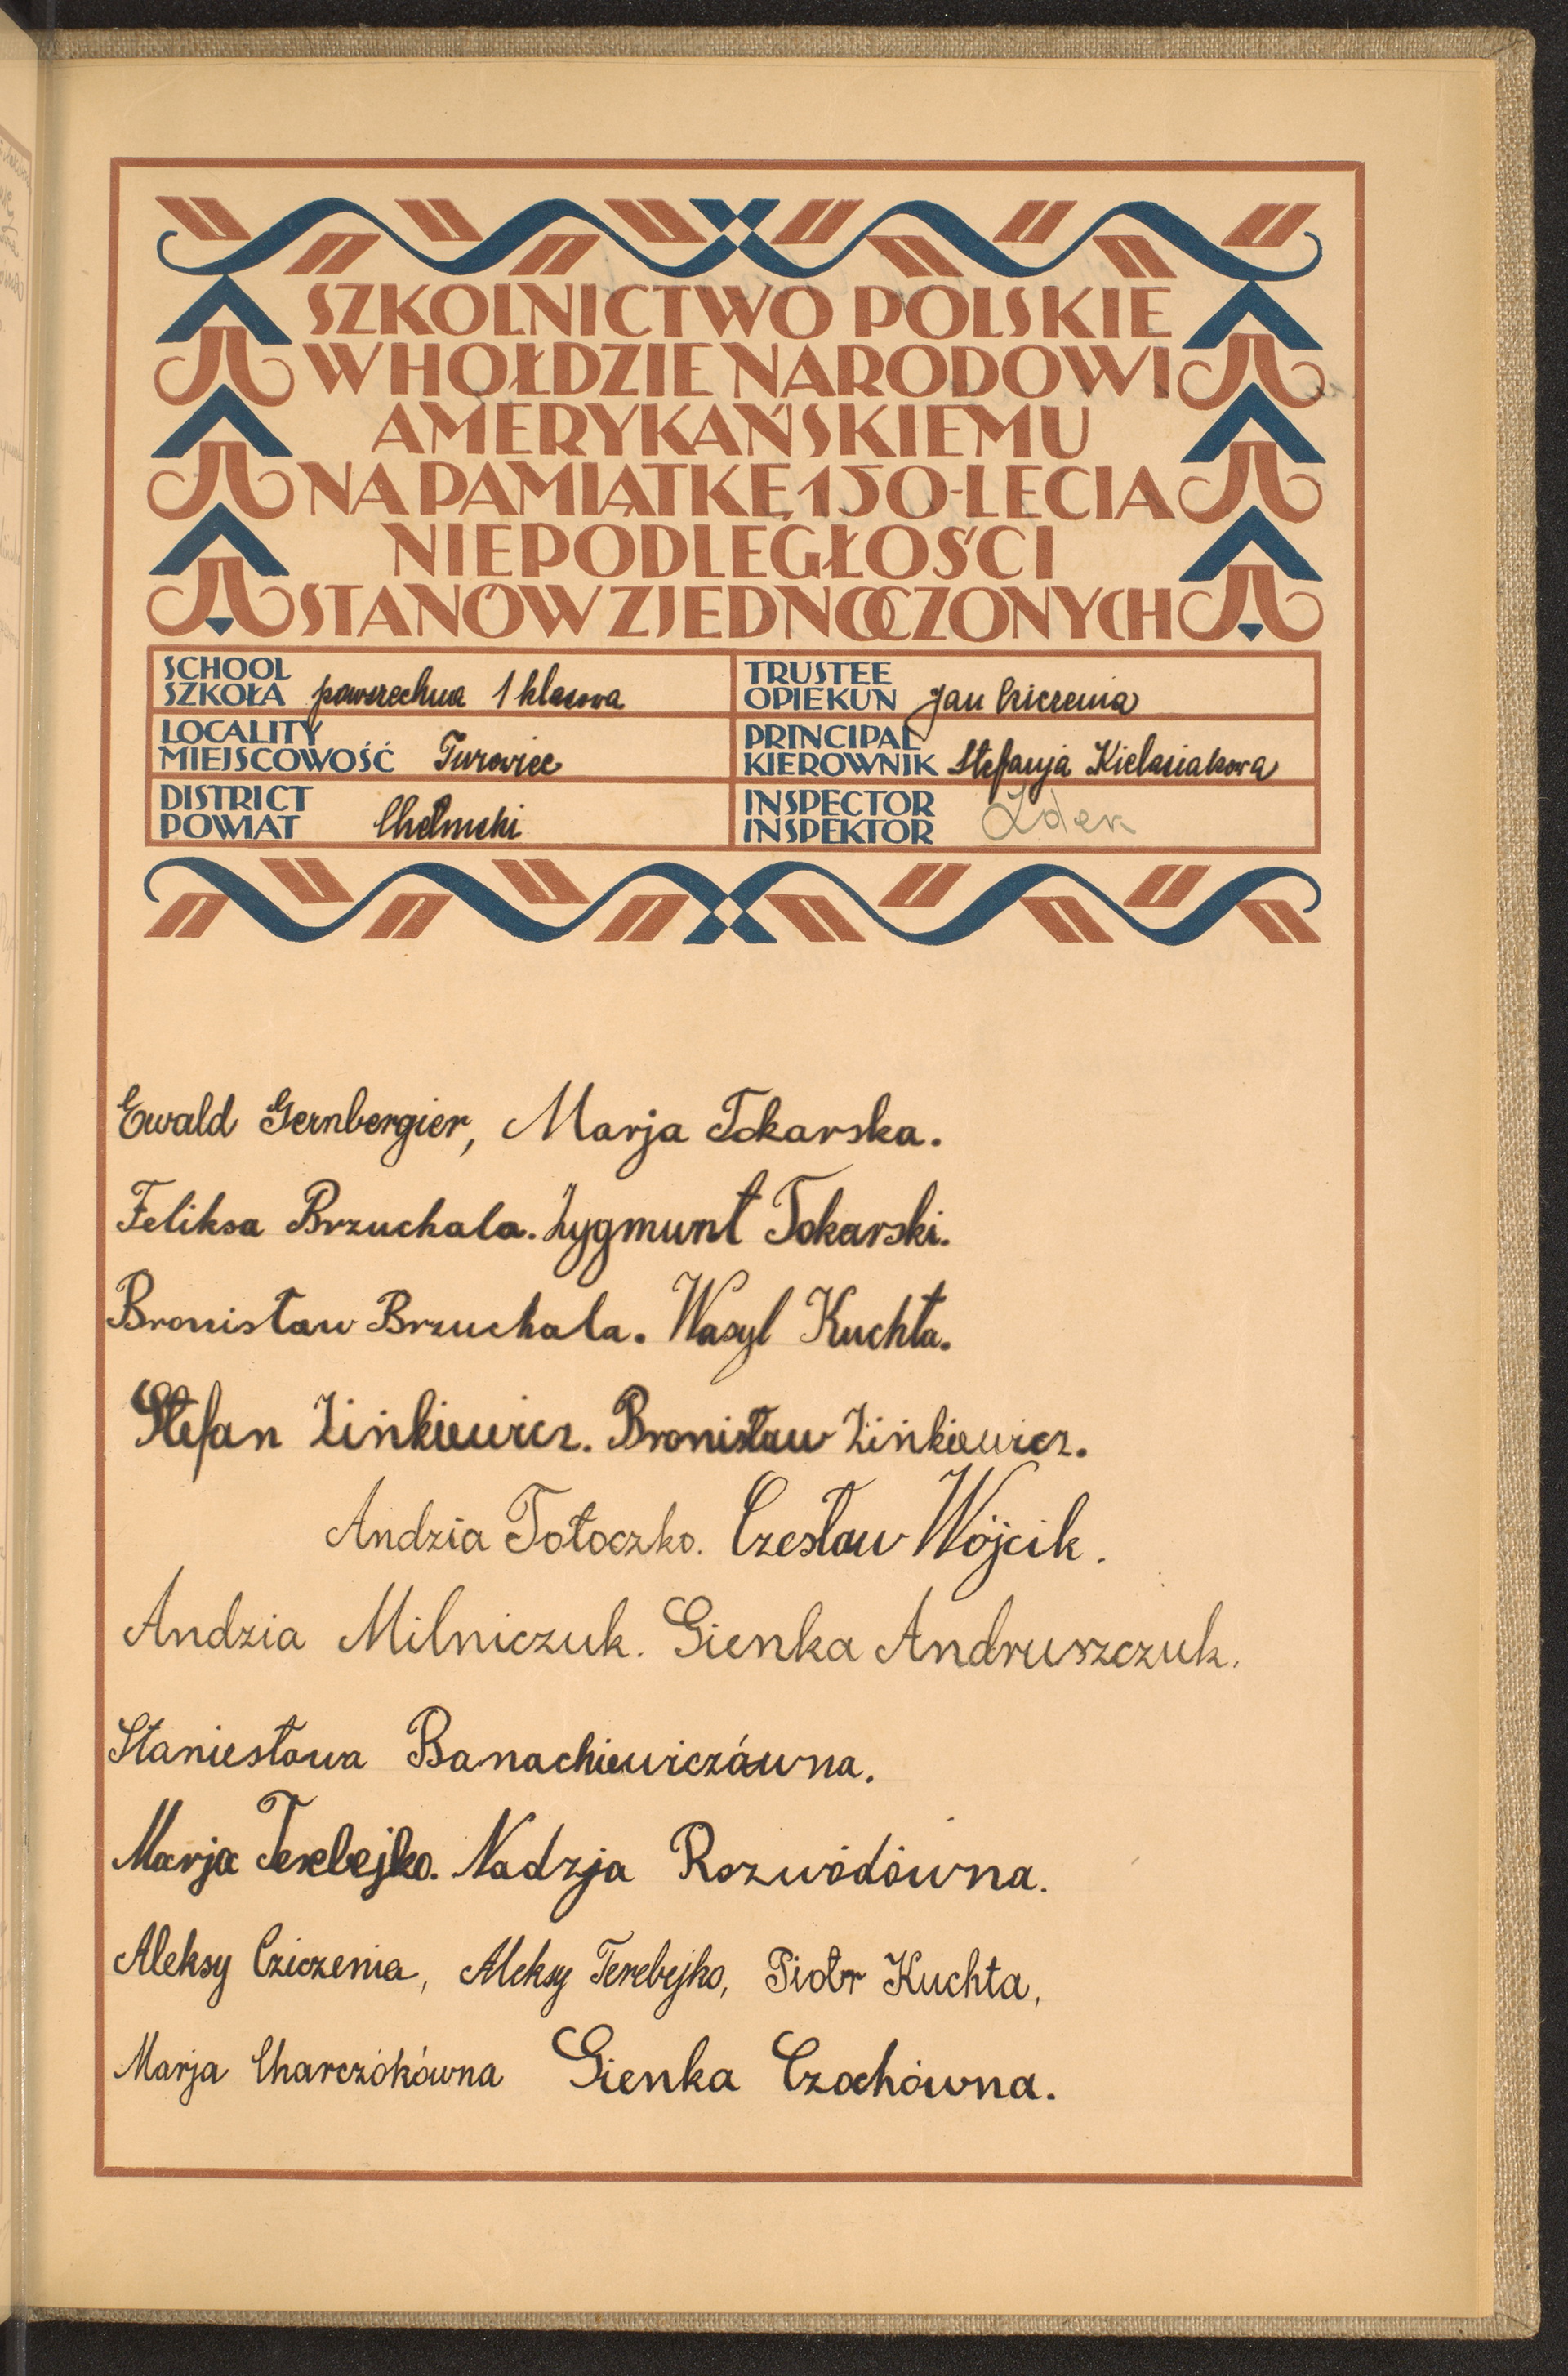 SZKOLNICTWO POLSKIE
W HOŁDZIE NARODOWI
AMERYKAŃSKIEMU
NA PAMIĄTKĘ 150-LECIA
NIEPODLEGŁOŚCI
STANÓW ZJEDNOCZONYCH
SCHOOL
SZKOŁA powszechna 1 klasowa
TRUSTEE
OPIEKUN Jan Cziczenia
LOCALITY
MIEJSCOWOŚĆ Turowiec
PRINCIPAL
KIEROWNIK Stefanja Kielasiakowa
DISTRICT
POWIAT Chełmski
INSPECTOR
INSPEKTOR
Ewald Gernbergier, Marja Tokarska.
Feliksa Brzuchala. Zygmunt Tokarski.
Bronisław Brzuchala. Wasyl Kuchta.
Stefan Zińkiewicz. Bronisław Zińkiewicz.
Andzia Tołoczko. Czesław Wójcik.
Andzia Milniczuk. Gienka Andruszczuk.
Staniesława Banachiewiczówna.
Marja Terebejko. Nadzja Rozwódówna.
Aleksy Cziczenia, Aleksy Terebejko, Piotr Kuchta,
Marja Charczókówna Gienka Czochówna.